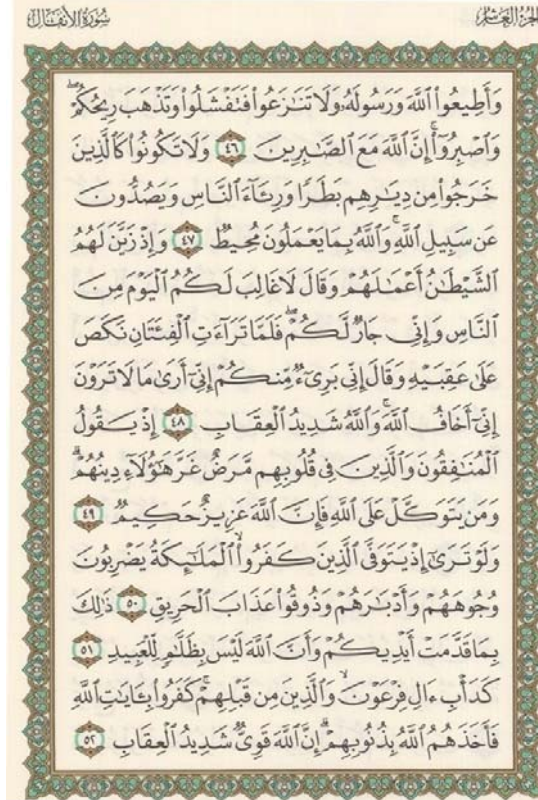 الجزء العاشر سورة الأنفال
وَأَطِيعُوا۟ ٱللَّهَ وَرَسُولَهُۥ وَلَا تَنَـٰزَعُوا۟ فَتَفْشَلُوا۟ وَتَذْهَبَ رِيحُكُمْ ۖ
وَٱصْبِرُوٓا۟ ۚ إِنَّ ٱللَّهَ مَعَ ٱلصَّـٰبِرِينَ ٤٦ وَلَا تَكُونُوا۟ كَٱلَّذِينَ
خَرَجُوا۟ مِن دِيَـٰرِهِم بَطَرًا وَرِئَآءَ ٱلنَّاسِ وَيَصُدُّونَ
عَن سَبِيلِ ٱللَّهِ ۚ وَٱللَّهُ بِمَا يَعْمَلُونَ مُحِيطٌ ٤٧ وَإِذْ زَيَّنَ لَهُمُ
ٱلشَّيْطَـٰنُ أَعْمَـٰلَهُمْ وَقَالَ لَا غَالِبَ لَكُمُ ٱلْيَوْمَ مِنَ
ٱلنَّاسِ وَإِنِّى جَارٌ لَّكُمْ ۖ فَلَمَّا تَرَآءَتِ ٱلْفِئَتَانِ نَكَصَ
عَلَىٰ عَقِبَيْهِ وَقَالَ إِنِّى بَرِىٓءٌ مِّنكُمْ إِنِّىٓ أَرَىٰ مَا لَا تَرَوْنَ
إِنِّىٓ أَخَافُ ٱللَّهَ ۚ وَٱللَّهُ شَدِيدُ ٱلْعِقَابِ ٤٨ إِذْ يَقُولُ
ٱلْمُنَـٰفِقُونَ وَٱلَّذِينَ فِى قُلُوبِهِم مَّرَضٌ غَرَّ هَـٰٓؤُلَآءِ دِينُهُمْ ۗ
وَمَن يَتَوَكَّلْ عَلَى ٱللَّهِ فَإِنَّ ٱللَّهَ عَزِيزٌ حَكِيمٌ ٤٩
وَلَوْ تَرَىٰٓ إِذْ يَتَوَفَّى ٱلَّذِينَ كَفَرُوا۟ ۙ ٱلْمَلَـٰٓئِكَةُ يَضْرِبُونَ
وُجُوهَهُمْ وَأَدْبَـٰرَهُمْ وَذُوقُوا۟ عَذَابَ ٱلْحَرِيقِ ٥٠ ذَٰلِكَ
بِمَا قَدَّمَتْ أَيْدِيكُمْ وَأَنَّ ٱللَّهَ لَيْسَ بِظَلَّـٰمٍ لِّلْعَبِيدِ ٥١
كَدَأْبِ ءَالِ فِرْعَوْنَ ۙ وَٱلَّذِينَ مِن قَبْلِهِمْ ۚ كَفَرُوا۟ بِـَٔايَـٰتِ ٱللَّهِ
فَأَخَذَهُمُ ٱللَّهُ بِذُنُوبِهِمْ ۗ إِنَّ ٱللَّهَ قَوِىٌّ شَدِيدُ ٱلْعِقَابِ ٥٢